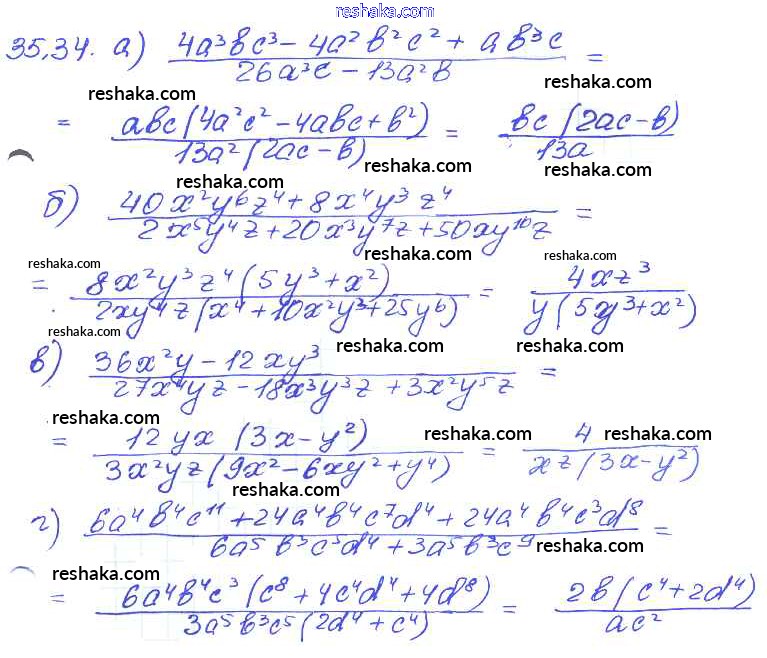 reshaka.com
35,34. а) (4a³bc³ − 4a²b²c² + ab³c)/(26a³c − 13a²b) =
reshaka.com reshaka.com
= abc(4a²c² − 4abc + b²)/(13a²(2ac − b)) = bc(2ac − b)/(13a)
reshaka.com reshaka.com
б) (40x²y⁶z⁴ + 8x⁴y³z⁴)/(2x⁵y⁴z + 20x³y⁷z + 50xy¹⁰z) =
reshaka.com
reshaka.com reshaka.com
= 8x²y³z⁴(5y³ + x²)/(2xy⁴z(x⁴ + 10x²y³ + 25y⁶)) = 4xz³/(y(5y³ + x²))
reshaka.com
reshaka.com
в) (36x²y − 12xy³)/(27x⁴yz − 18x³y³z + 3x²y⁵z) =
reshaka.com
= 12yx(3x − y²)/(3x²yz(9x² − 6xy² + y⁴)) = 4/(xz(3x − y²))
reshaka.com reshaka.com
reshaka.com
г) (6a⁴b⁴c¹¹ + 24a⁴b⁴c⁷d⁴ + 24a⁴b⁴c³d⁸)/(6a⁵b³c⁵d⁴ + 3a⁵b³c⁹) =
reshaka.com
reshaka.com
= 6a⁴b⁴c³(c⁸ + 4c⁴d⁴ + 4d⁸)/(3a⁵b³c⁵(2d⁴ + c⁴)) = 2b(c⁴ + 2d⁴)/(ac²)
reshaka.com